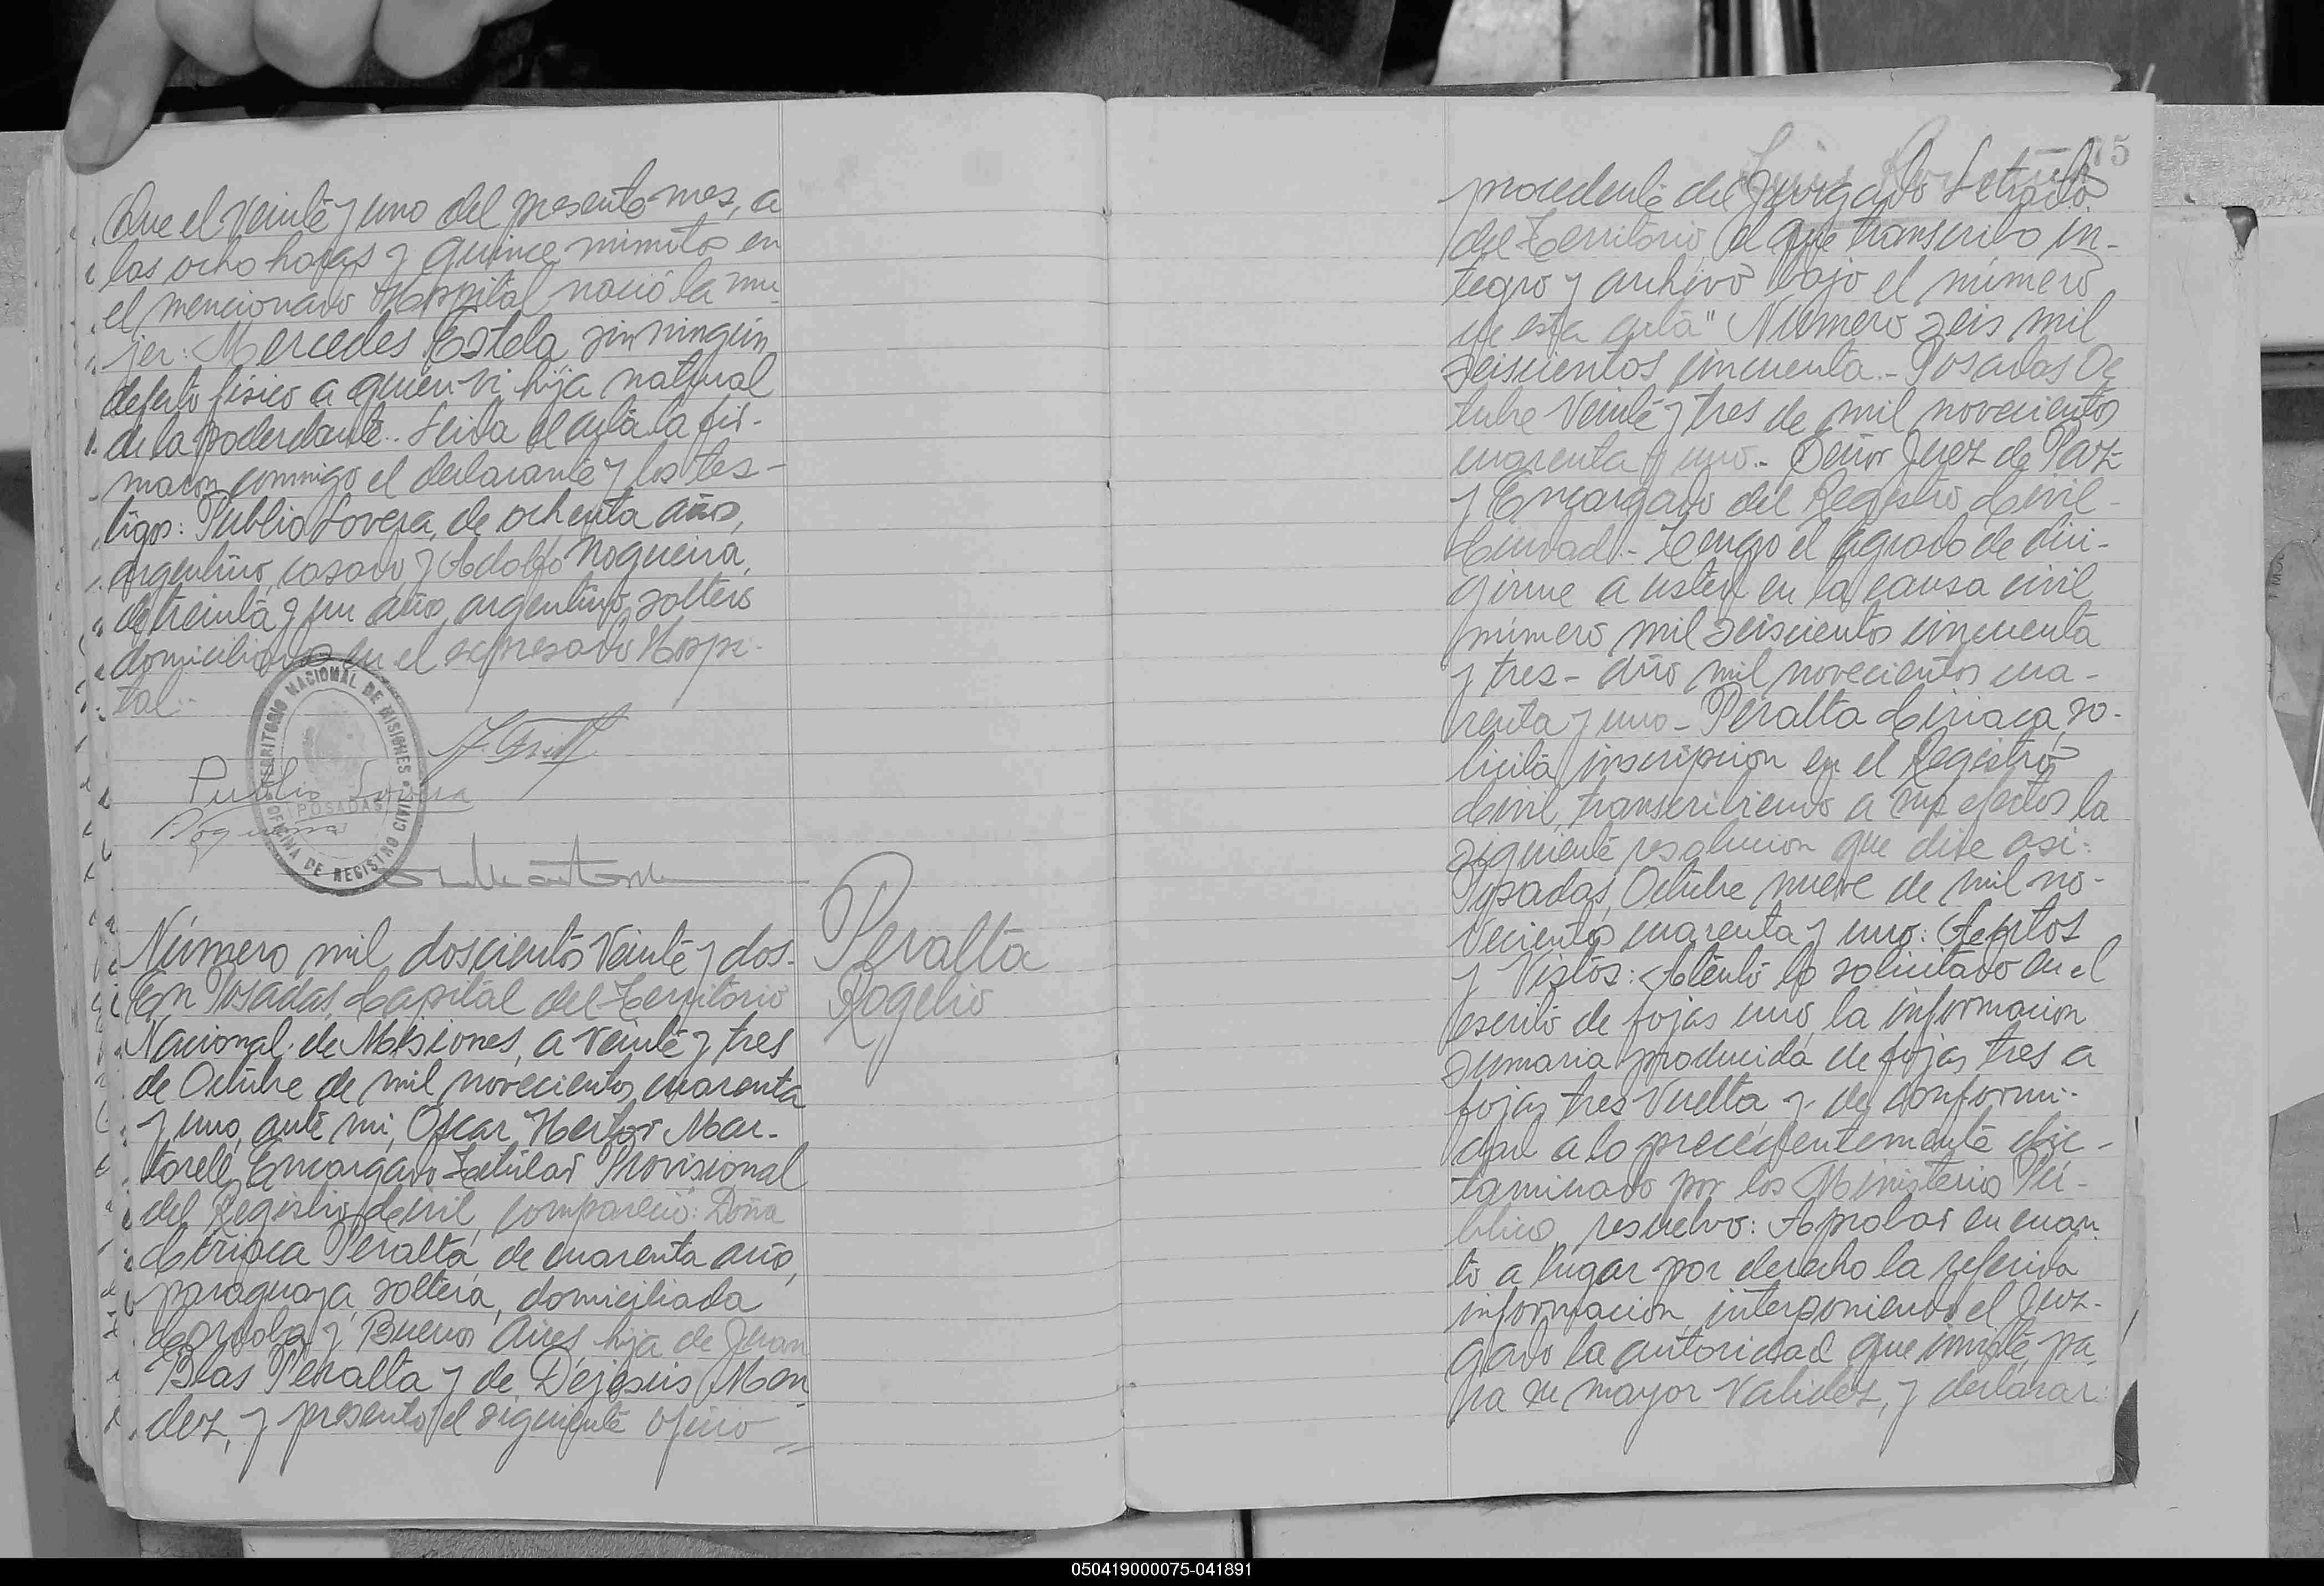 Que el Veinte y uno del presente mes, a
las ocho horas y quince minutos en
el mencionado Hospital nació la mu-
jer: Mercedes Estela, sin ningún
defecto físico a quien vi hija natural
de la poderdante. Leida el acta la fir-
maron conmigo el declarante y los tes-
tigos: Publio Lovera, de ochenta años,
argentino, casado y Adolfo Nogueira,
de treinta y un años, argentino, soltero
domiciliados en el expresado Hospi-
tal.-
TERRITORIO NACIONAL DE MISIONES
POSADAS
OFICINA DE REGISTRO CIVIL
Publio Lovera
Nogueira
Número mil doscientos Veinte y dos.
En Posadas, Capital del Territorio
Nacional de Misiones, a Veinte y tres
de Octubre de mil novecientos cuarenta
y uno, ante mi, Oscar Hector Mar-
torell, Encargado Titular Provisional
del Registro Civil, compareció: Doña
Ciriaca Peralta, de cuarenta años,
paraguaya, soltera, domiciliada
Cordoba y Buenos Aires hija de Juan
Blas Peralta y de Dejesús Men-
dez, y presento el siguiente oficio
Peralta
Rogelio
75
procedente del Juzgado Letrado
del Territorio, el que transcribo in-
tegro y archivo bajo el número
de esta acta" Número seis mil
seiscientos cincuenta.- Posadas Oc
tubre Veinte y tres de mil novecientos
cuarenta y uno.- Señor Juez de Paz
y Encargado del Registro Civil-
Ciudad.- Tengo el agrado de diri-
girme a usted en la causa civil
número mil seiscientos cincuenta
y tres- año mil novecientos cua-
renta y uno- Peralta Ciriaca, so-
licita inscripcion en el Registro
Civil, transcribiendo a sus efectos la
siguiente resolucion que dice asi:
Posadas, Octubre nueve de mil no-
vecientos cuarenta y uno: Autos
y Vistos: Atento lo solicitado en el
escrito de fojas uno, la informacion
sumaria producida de fojas tres a
fojas tres Vuelta, y de conformi-
dad a lo precedentemente dic-
taminado por los Ministerios Pú-
blico, resuelvo: Aprobar en cuan-
to a lugar por derecho la referida
informacion, interponiendo el Juz-
gado la autoridad que inviste, pa-
ra su mayor Validez, y declarar
050419000075-041891